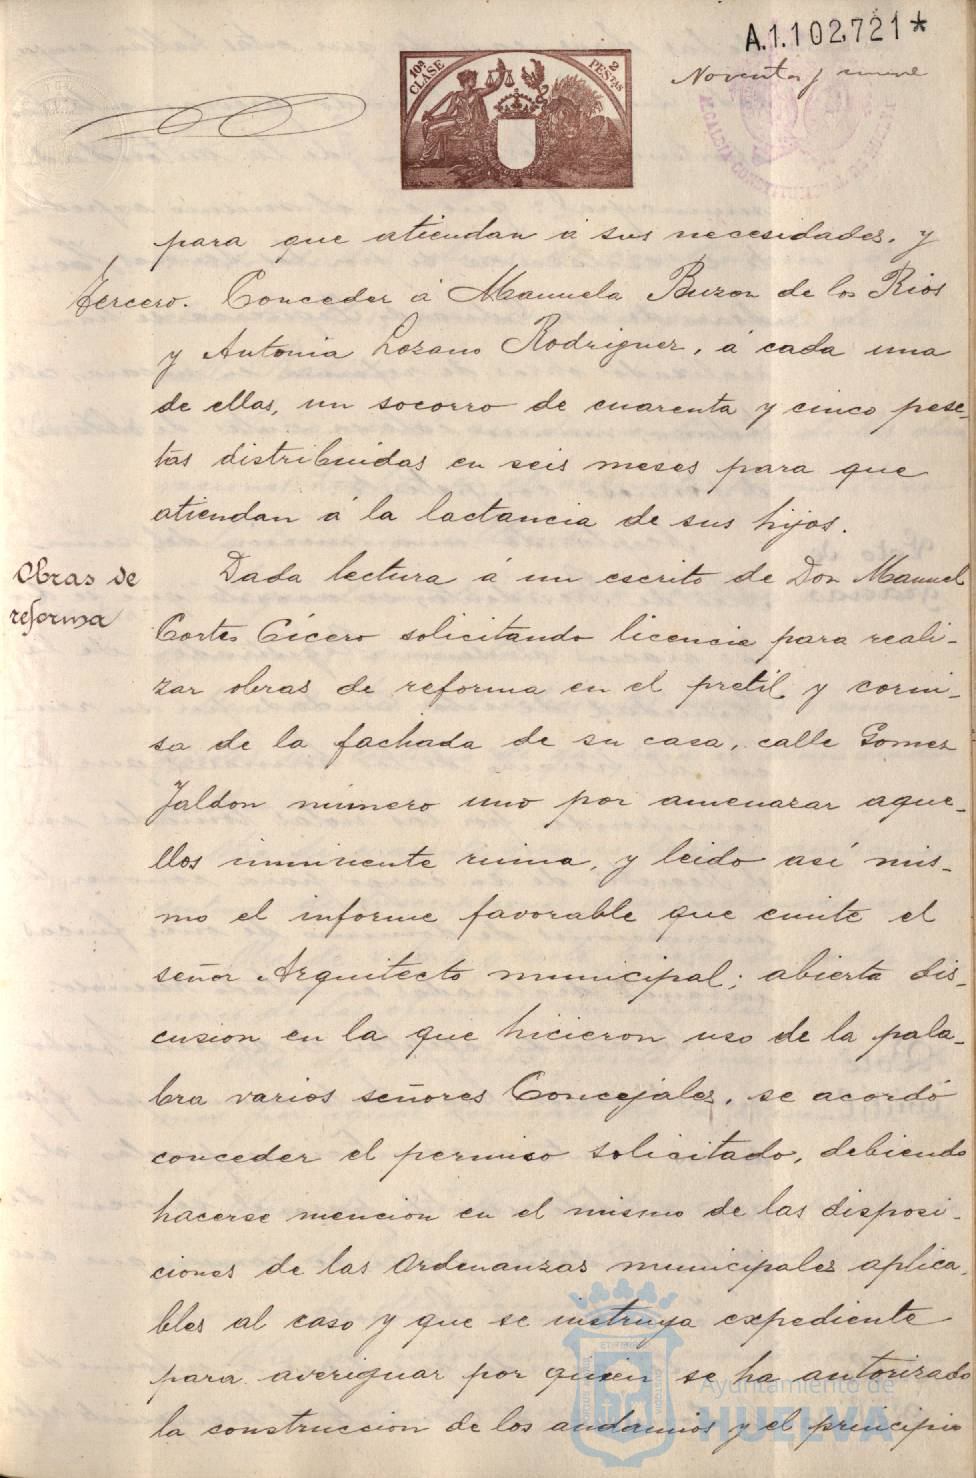 A.1.102.721*
Noventa y nueve
10ª CLASE
2 PESETAS
ALCALDIA CONSTITUCIONAL DE HUELVA
para que atiendan á sus necesidades. y
Tercero. Conceder á Manuela Buzon de los Rios
y Antonia Lozano Rodriguez, á cada una
de ellas, un socorro de cuarenta y cinco pese-
tas distribuidas en seis meses para que
atiendan á la lactancia de sus hijos.
Obras de
reforma
Dada lectura á un escrito de Don Manuel
Cortes Cícero solicitando licencia para reali-
zar obras de reforma en el pretil y corni-
sa de la fachada de su casa, calle Gomez
Jaldon número uno por amenazar aque-
llos inminente ruina, y leido así mis-
mo el informe favorable que emite el
señor Arquitecto municipal; abierta dis-
cusion en la que hicieron uso de la pala-
bra varios señores Concejales, se acordó
conceder el permiso solicitado, debiendo
hacerse mencion en el mismo de las disposi-
ciones de las Ordenanzas municipales aplica-
bles al caso y que se instruya expediente
para averiguar por quien se ha autorizado
la construccion de los andamios y el principio
Ayuntamiento de
HUELVA